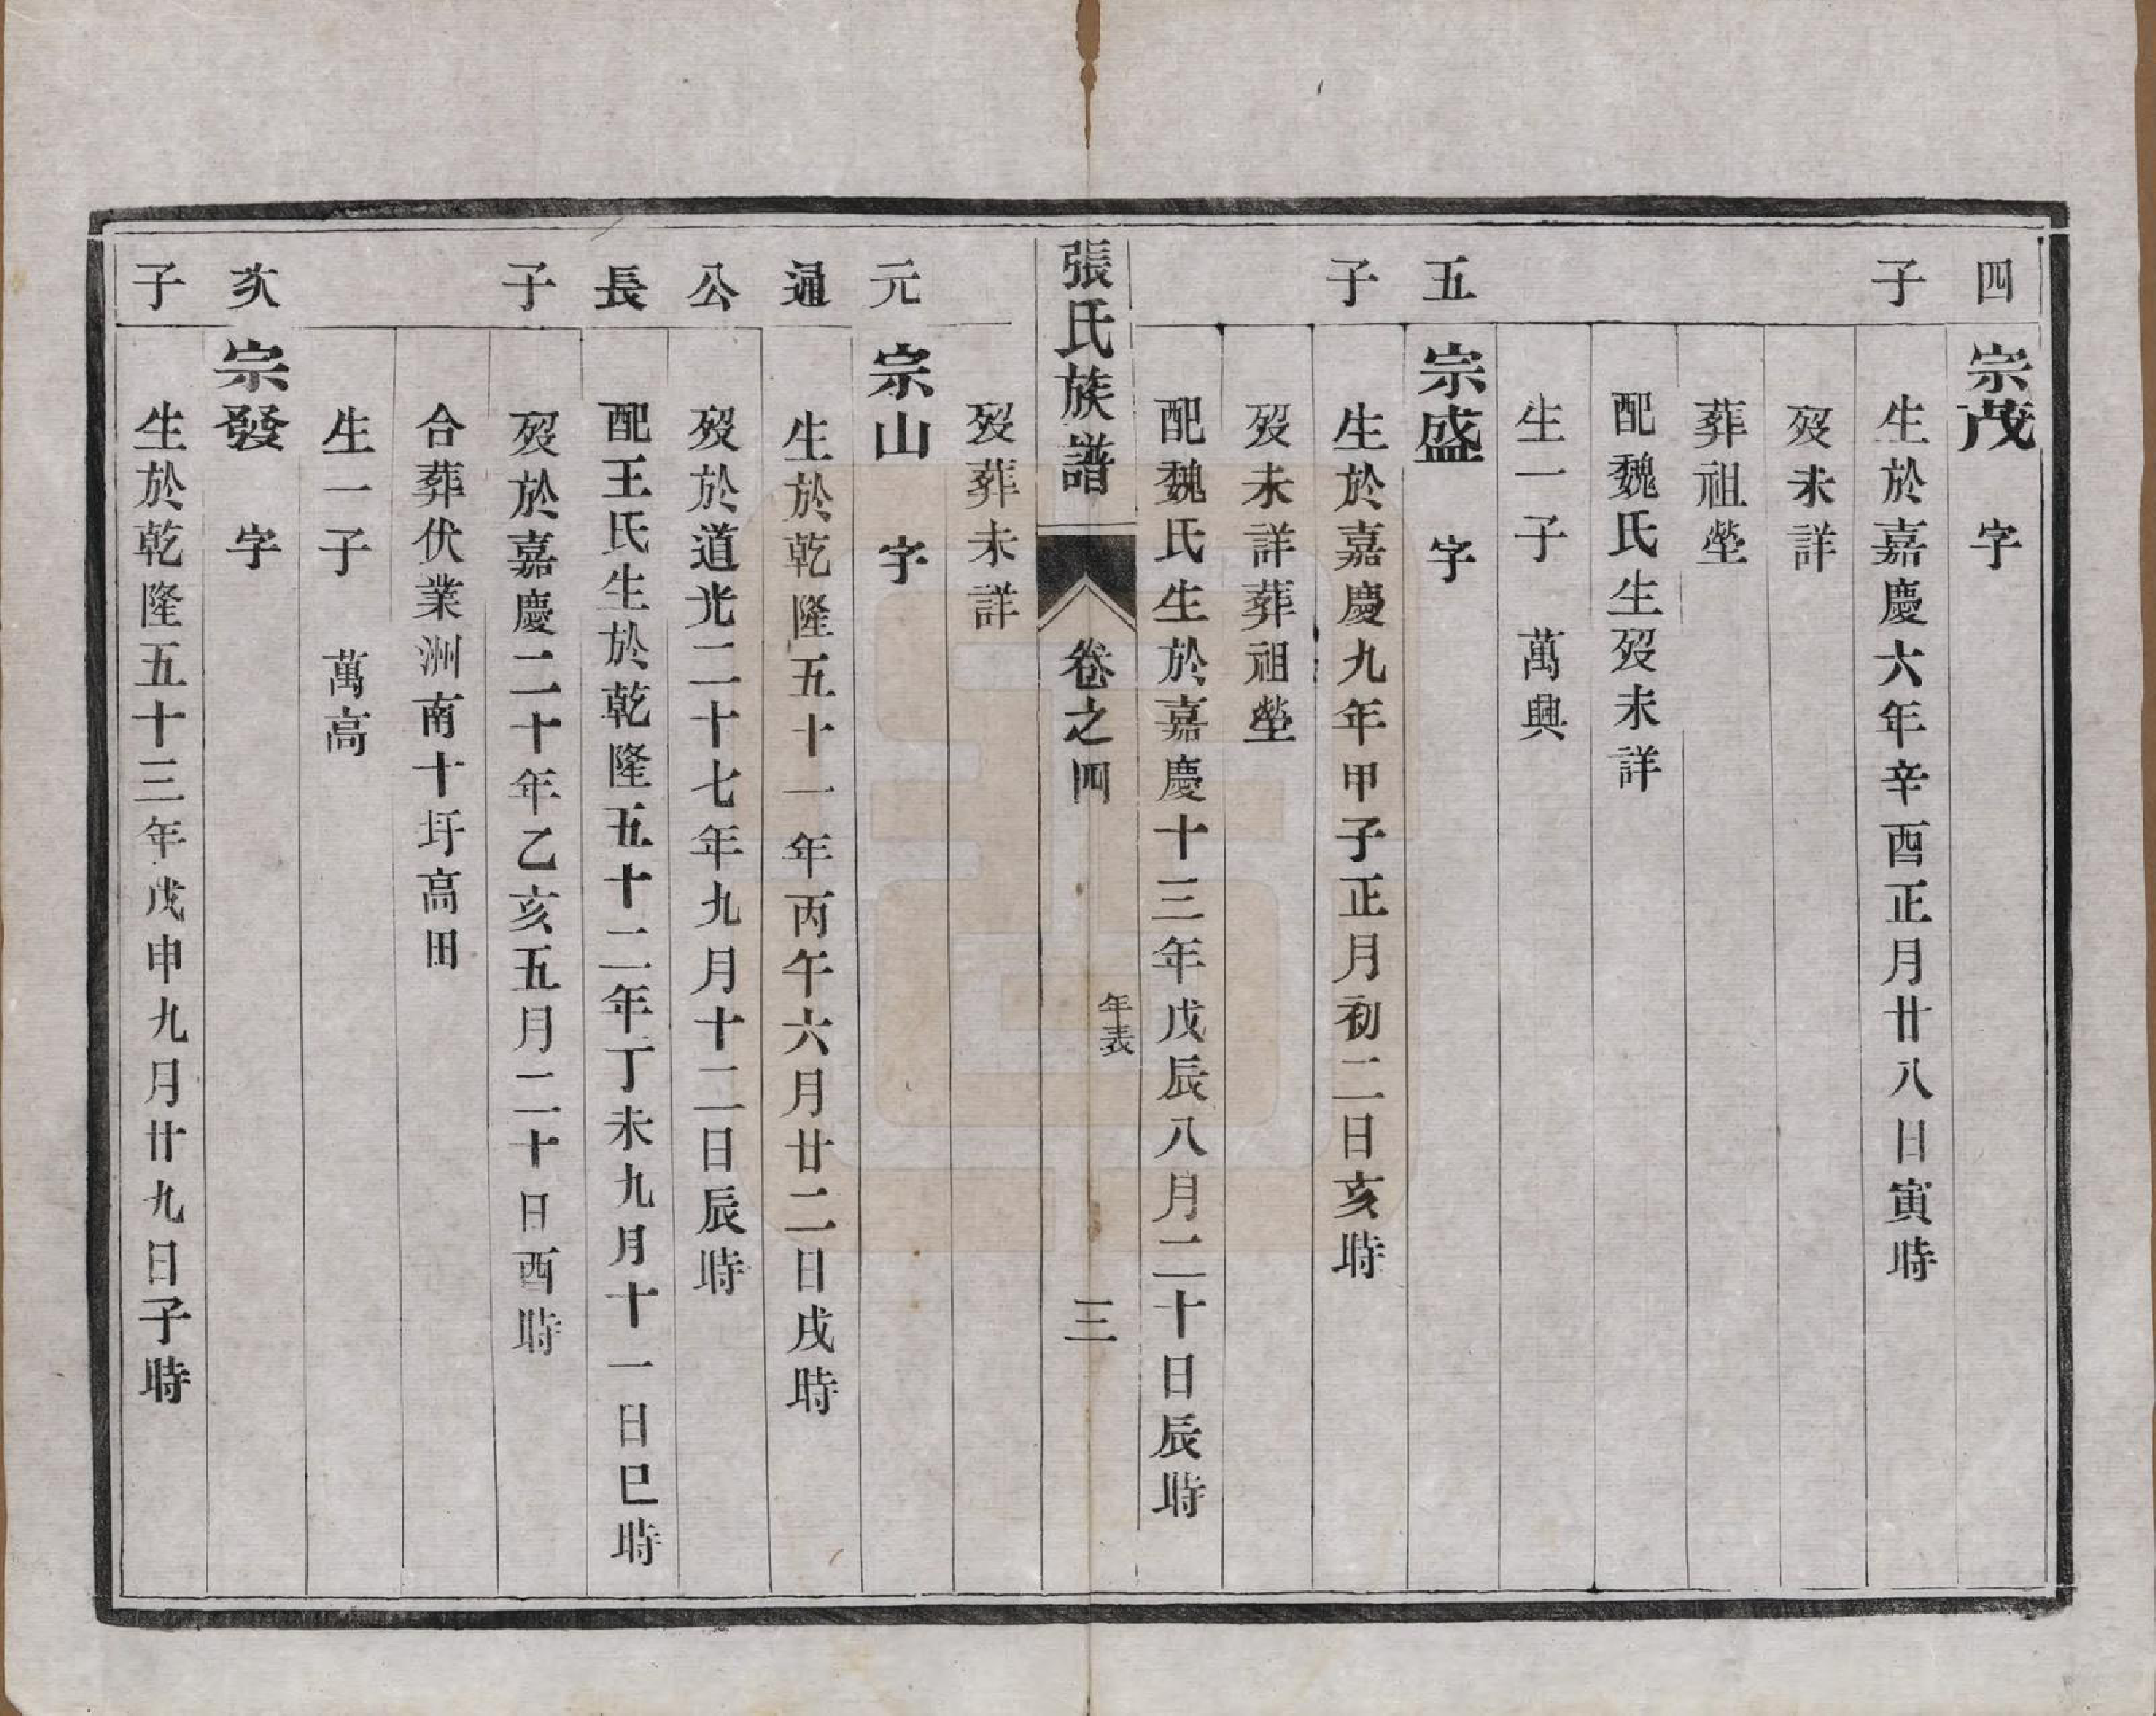 四 宗茂 字
子 生於嘉慶六年辛酉正月廿八日寅時
歿未詳
葬祖塋
配魏氏生歿未詳
生一子 萬興
五 宗盛 字
子 生於嘉慶九年甲子正月初二日亥時
歿未詳葬祖塋
配魏氏生於嘉慶十三年戊辰八月二十日辰時
張氏族譜 卷之四 年表 三
歿葬未詳
元 宗山 字
通 生於乾隆五十一年丙午六月廿二日戌時
公 歿於道光二十七年九月十二日辰時
長 配王氏生於乾隆五十二年丁未九月十一日巳時
子 歿於嘉慶二十年乙亥五月二十日酉時
合葬伏業洲南十圩高田
生一子 萬高
次 宗發 字
子 生於乾隆五十三年戊申九月廿九日子時